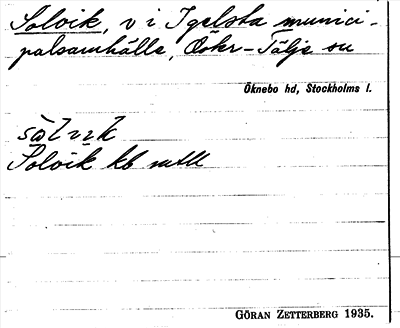 Solvik, v i Igelsta munici-
palsamhälle, Östr-Tälje sn
Öknebo hd, Stockholms l.
Solvik kb mtll
GÖRAN ZETTERBERG 1935.